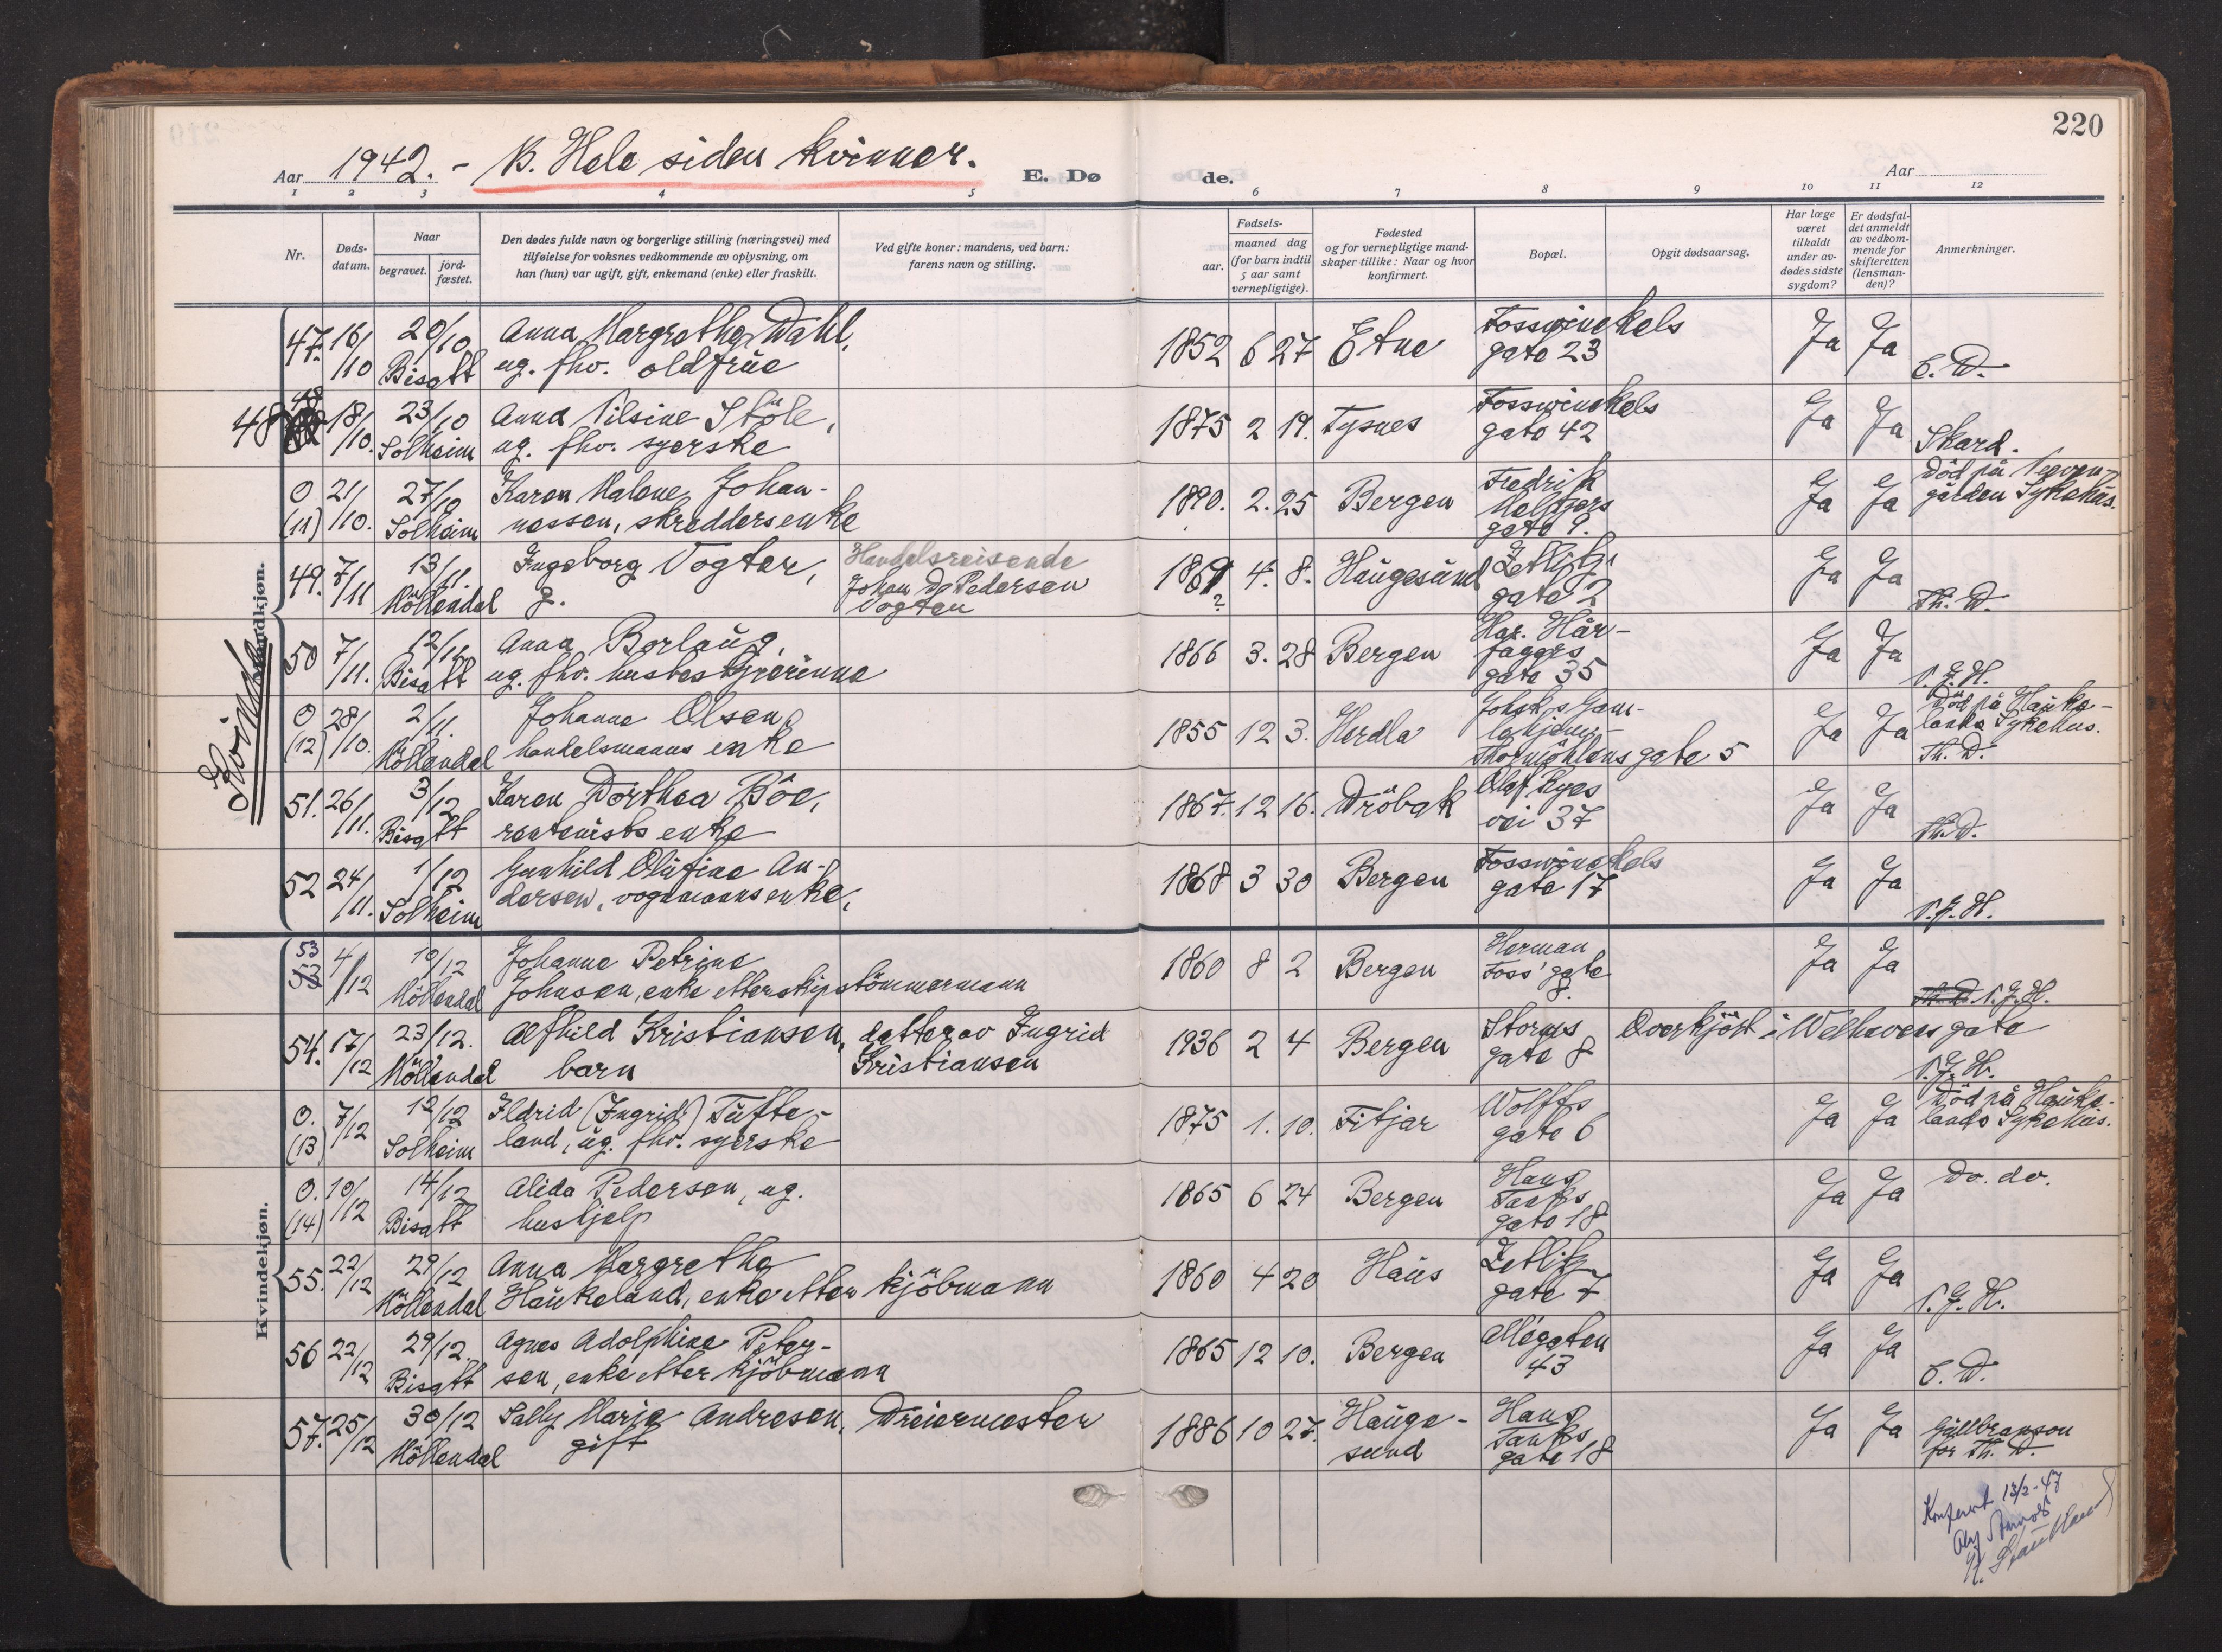 220
Aar 1942. - B. Hele siden kvinner.
E. Dø de.
Aar
1 2 3 4 5 6 7 8 9 10 11 12
Nr.
Døds-
datum.
Naar
begravet.
jord-
fæstet.
Den dødes fulde navn og borgerlige stilling (næringsvei) med
tilføielse for voksnes vedkommende av oplysning, om
han (hun) var ugift, gift, enkemand (enke) eller fraskilt.
Ved gifte koner: mandens, ved barn:
farens navn og stilling.
Fødsels-
aar.
maaned dag
(for barn indtil
5 aar samt
vernepligtige).
Fødested
og for vernepligtige mand-
skaper tillike: Naar og hvor
konfirmert.
Bopæl.
Opgit dødsaarsag.
Har læge
været
tilkaldt
under av-
dødes sidste
sygdom?
Er dødsfal-
det anmeldt
av vedkom-
mende for
skifteretten
(lensman-
den)?
Anmerkninger.
Kvinde
Mandkjøn.
47. 16/10 20/10 Anna Margrethe Dahl, 1852 6 27 Etne Fosswinckels Ja Ja
Bisatt ug. fhv. oldfrue gate 23 C. D.
48 48 18/10. 23/10 Anna Nilsine Stöle, 1875 2 19. Tysnes Fosswinckels Ja Ja
Solheim ug. fhv. syerske gate 42 Skard.
0 21/10. 27/10 Karen Malene Johan- 1890. 2. 25 Bergen Fredrik Ja Ja Död på
(11) Solheim nessen, skreddersenke Meltzers gården Sykehus.
gate 9.
49. 7/11 13/11. Ingeborg Vogter, Handelsreisende 1869 4. 8. Haugesund Zetlitz Ja Ja
Möllendal g. Johan D. Pedersen ? gate 2 Th. D.
Vogter
50 7/11. 12/11 Anna Borlaug, 1866 3. 28 Bergen Har. Hår- Ja Ja
Bisatt ug. fhv. husbestyrerinne fagers
gate 35 N. J. H.
0 28/10. 2/11. Johanne Olsen, 1855 12 3. Herdla Johsk's Gam- Ja Ja Död på Hauke-
(12) Möllendal handelsmanns enke lehjem lands Sykehus.
Thormöhlens gate 5 Th. D.
51. 26/11. 3/12 Karen Dorthea Böe, 1867. 12 16. Dröbak Olaf Ryes Ja Ja
Bisatt rentenists enke vei 37 Th. D.
52 24/11. 1/12 Gunhild Olufine An- 1868 3 30 Bergen Fosswinckels Ja Ja
Solheim dersen, vognmanns enke, gate 17 N. J. H.
53
53 4/12 10/12 Johanne Petrine 1860 8 2 Bergen Herman Ja Ja
Möllendal Johnsen, enke etter skipstömmermann Foss' gate
8. Th. D. N. J. H.
54. 17/12 23/12. Alfhild Kristiansen, datter av Ingrid 1936 2 4 Bergen Storms Overkjört i Welhavens gate
Möllendal barn Kristiansen gate 8 N. J. H.
0. 7/12 12/12 Ildrid (Ingrid) Tufte- 1875 1. 10. Fitjar Wolffs Ja Ja Död på Hauke-
(13) Solheim land, ug. fhv. syerske gate 6 lands Sykehus.
Kvindekjøn.
0. 10/12 14/12 Alida Pedersen, ug. 1865 6 24 Bergen Hans Ja Ja Do. do.
(14) Bisatt hushjelp Tanks
gate 18
55. 22/12 29/12 Anna Margrethe 1860 4 20 Haus Zetlitz Ja Ja
Möllendal Haukeland, enke etter kjöbmann gate 7 N. J. H.
56 22/12 29/12 Agnes Adolphine Peter- 1865 12 10. Bergen Allégaten Ja Ja
Bisatt sen, enke etter kjöbmann 43 C. D.
57. 25/12 30/12 Sally Marie Andresen, Dreiermester 1886 10 27. Hauge- Hans Ja Ja Gullbransen
Möllendal gift sund Tanks for Th. D.
gate 18
Konferert 13/2-47